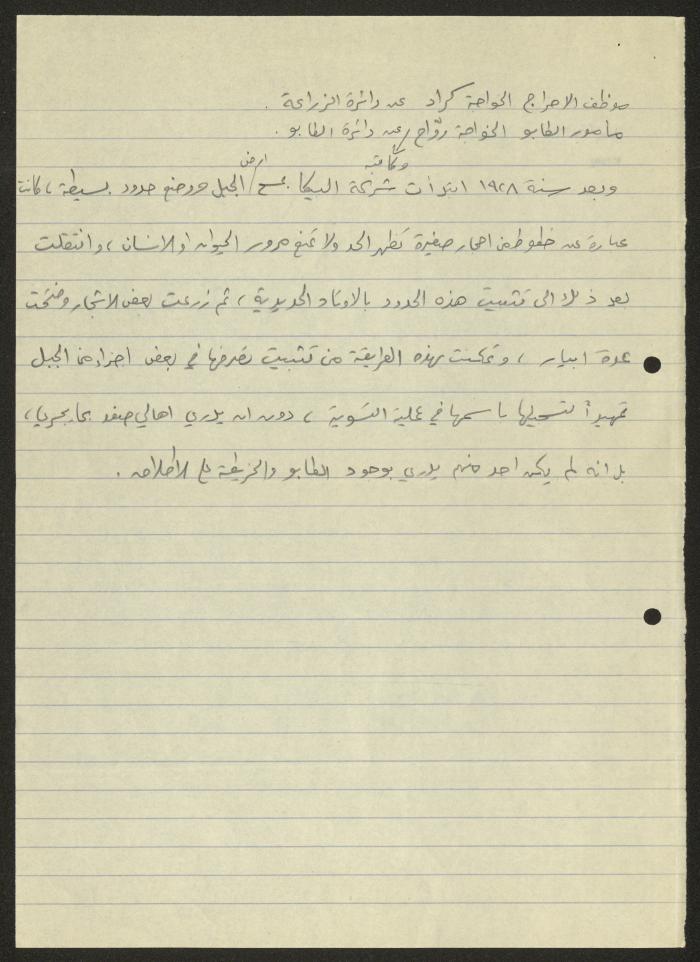 موظف الاحراج الخواجة كراد عن دائرة الزراعة .
مأمور الطابو الخواجة روّاح وكاتبه عن دائرة الطابو .
وبعد سنة ١٩٢٨ ابتدأت شركة البيكا بمسح ارض الجبل ووضع حدود بسيطة ، كانت
عبارة عن خطوط من احجار صغيرة تظهر الحد ولا تمنع مرور الحيوان او الانسان ، وانتقلت
بعد ذلك الى تثبيت هذه الحدود بالاوتاد الحديدية ، ثم زرعت بعض الاشجار وفتحت
عدة ابيار ، وتمكنت بهذه الطريقة من تثبيت تصرفها في بعض اجزاء من الجبل
تمهيداً لتسجيلها باسمها في عملية التسوية ، دون ان يدري اهالي صفد بما يجري ،
بل انه لم يكن احد منهم يدري بوجود الطابو والخريطة على الاطلاق .